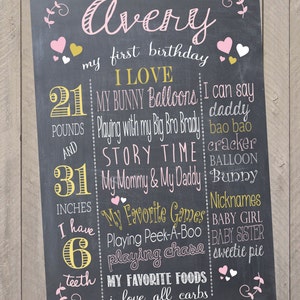 Avery
my first birthday
21
POUNDS
AND
31
INCHES
I have
6
teeth
I LOVE
MY BUNNY Balloons
Playing with my Big Bro Brady
STORY TIME
My Mommy & My Daddy
My Favorite Games
Playing Peek-A-Boo
playing chase
MY FAVORITE FOODS
i love all carbs
I can say
daddy
bao bao
cracker
BALLOON
Bunny
Nicknames
BABY GIRL
BABY SISTER
sweetie pie